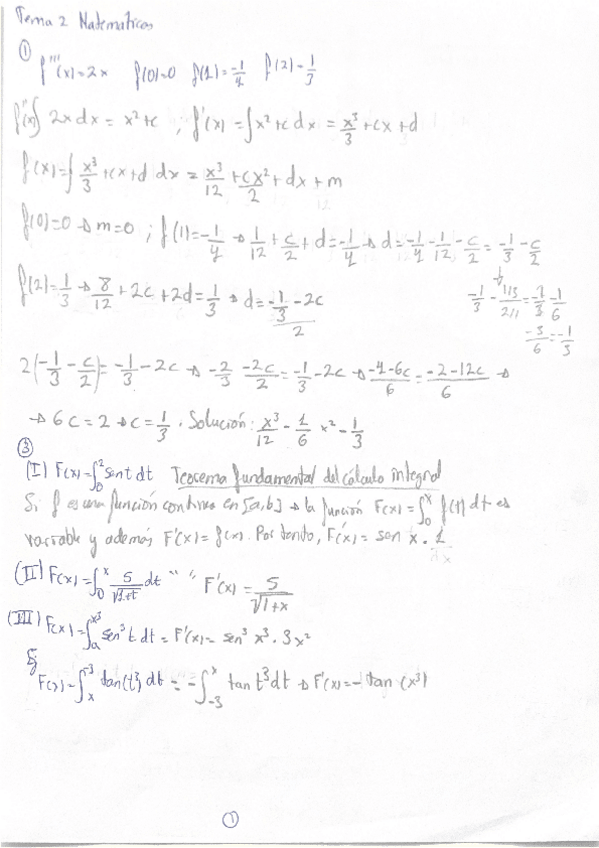 Tema 2 Matematicas
①
f'''(x)=2x f(0)=0 f(1)=-1/4 f(2)=1/3
f''(x)∫ 2x dx = x²+c ; f'(x) = ∫x²+c dx = x³/3 + cx + d
f(x)=∫ x³/3 + cx + d dx = x³/12 + cx²/2 + dx + m
f(0)=0 → m=0 ; f(1)=-1/4 → 1/12 + c/2 + d = -1/4 → d = -1/4 - 1/12 - c/2 = -1/3 - c/2
f(2)=1/3 → 8/12 + 2c + 2d = 1/3 → d = (-1/3 - 2c)/2
2(-1/3 - c/2) = -1/3 - 2c → -2/3 -2c/2 = -1/3 - 2c → (-4-6c)/6 = (-2-12c)/6 →
→ 6c = 2 → c = 1/3 . Solución: x³/12 - 1/6 x² - 1/3
③
(I) F(x)=∫₀² sent dt Teorema fundamental del cálculo integral
Si f es una función continea en [a,b] → la función F(x) = ∫₀ˣ f(t) dt es
variable y además F'(x) = f(x). Por tanto, F'(x) = sen x . 1
(II) F(x)=∫₀ˣ 5/√1+t dt " " F'(x) = 5/√1+x
(III) F(x)=∫ₐx³ sen³ t dt = F'(x) = sen³ x³ . 3x²
Ej
F(x)=∫ₓ⁻³ tan(t³) dt = -∫₋₃ˣ tan t³ dt → F'(x) = - tan (x³)
①